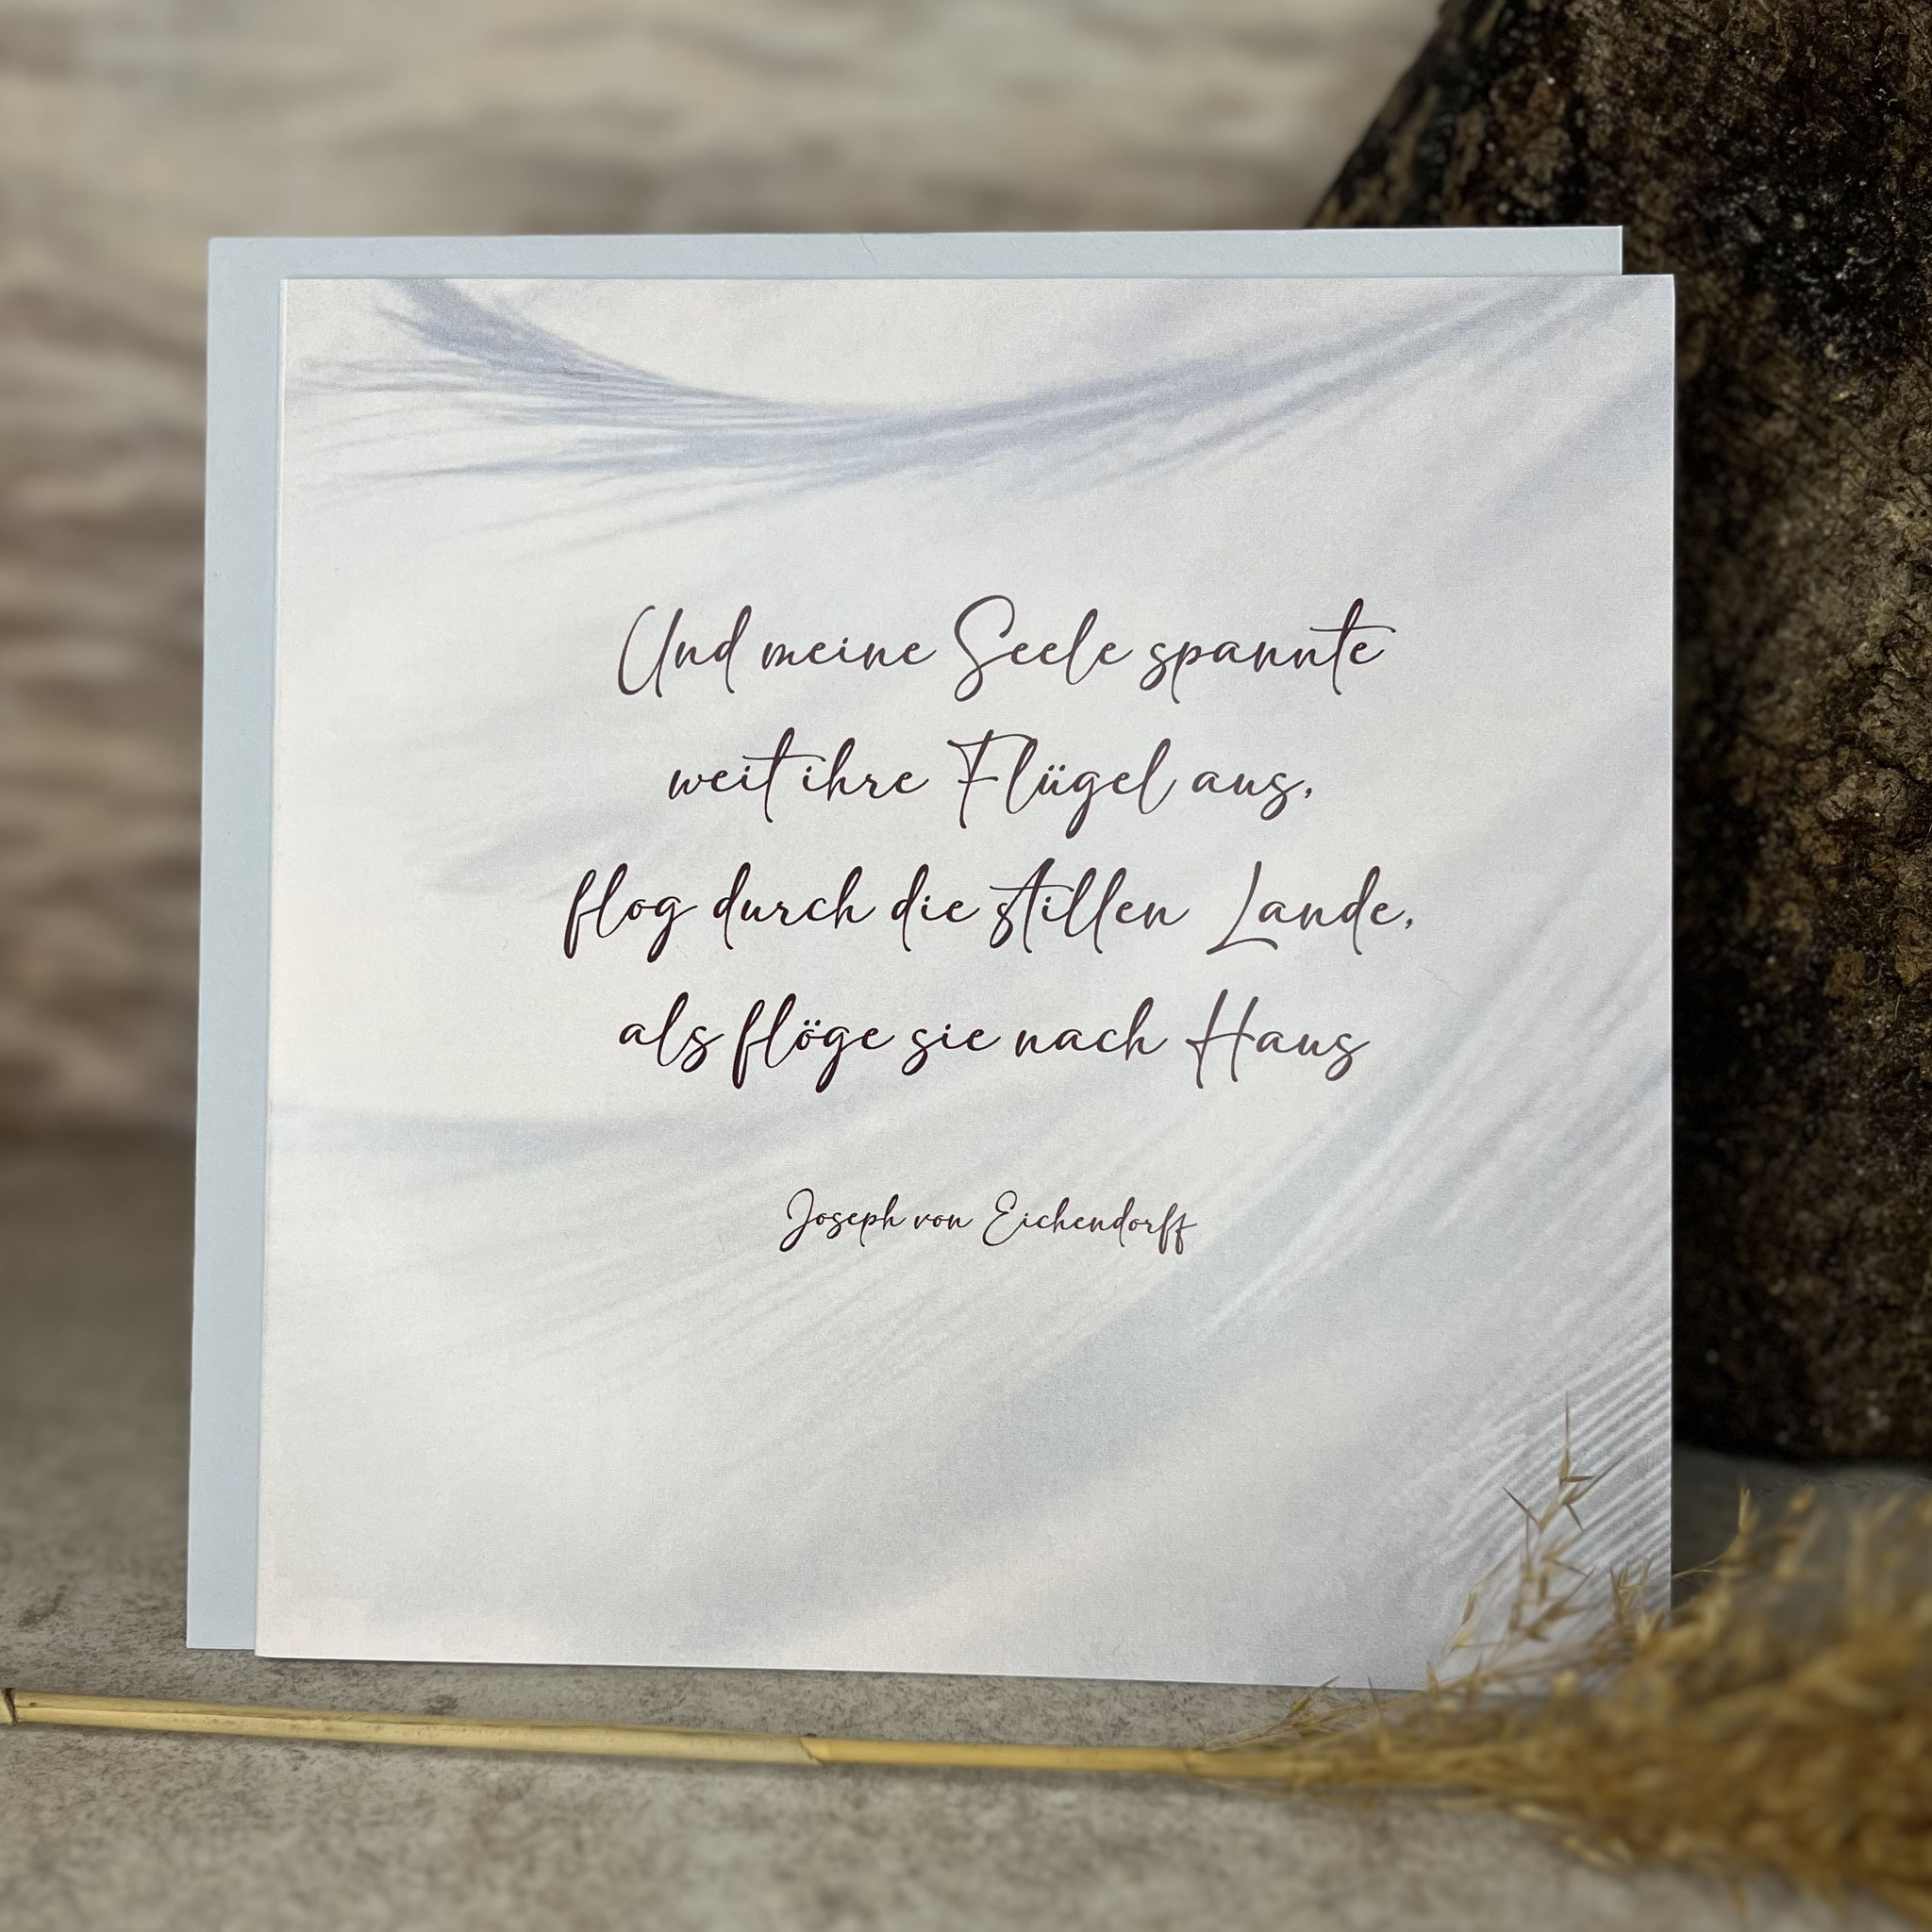 Und meine Seele spannte
weit ihre Flügel aus,
flog durch die stillen Lande,
als flöge sie nach Haus
Joseph von Eichendorff